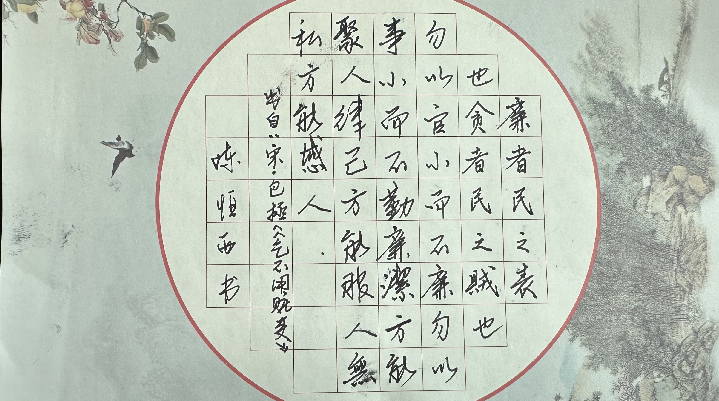 廉者民之表
也貪者民之賊也
勿以官小而不廉勿以
事小而不勤廉潔方能
聚人律己方能服人無
私方能感人
出自"宋·包拯《乞不用贓吏》
西书